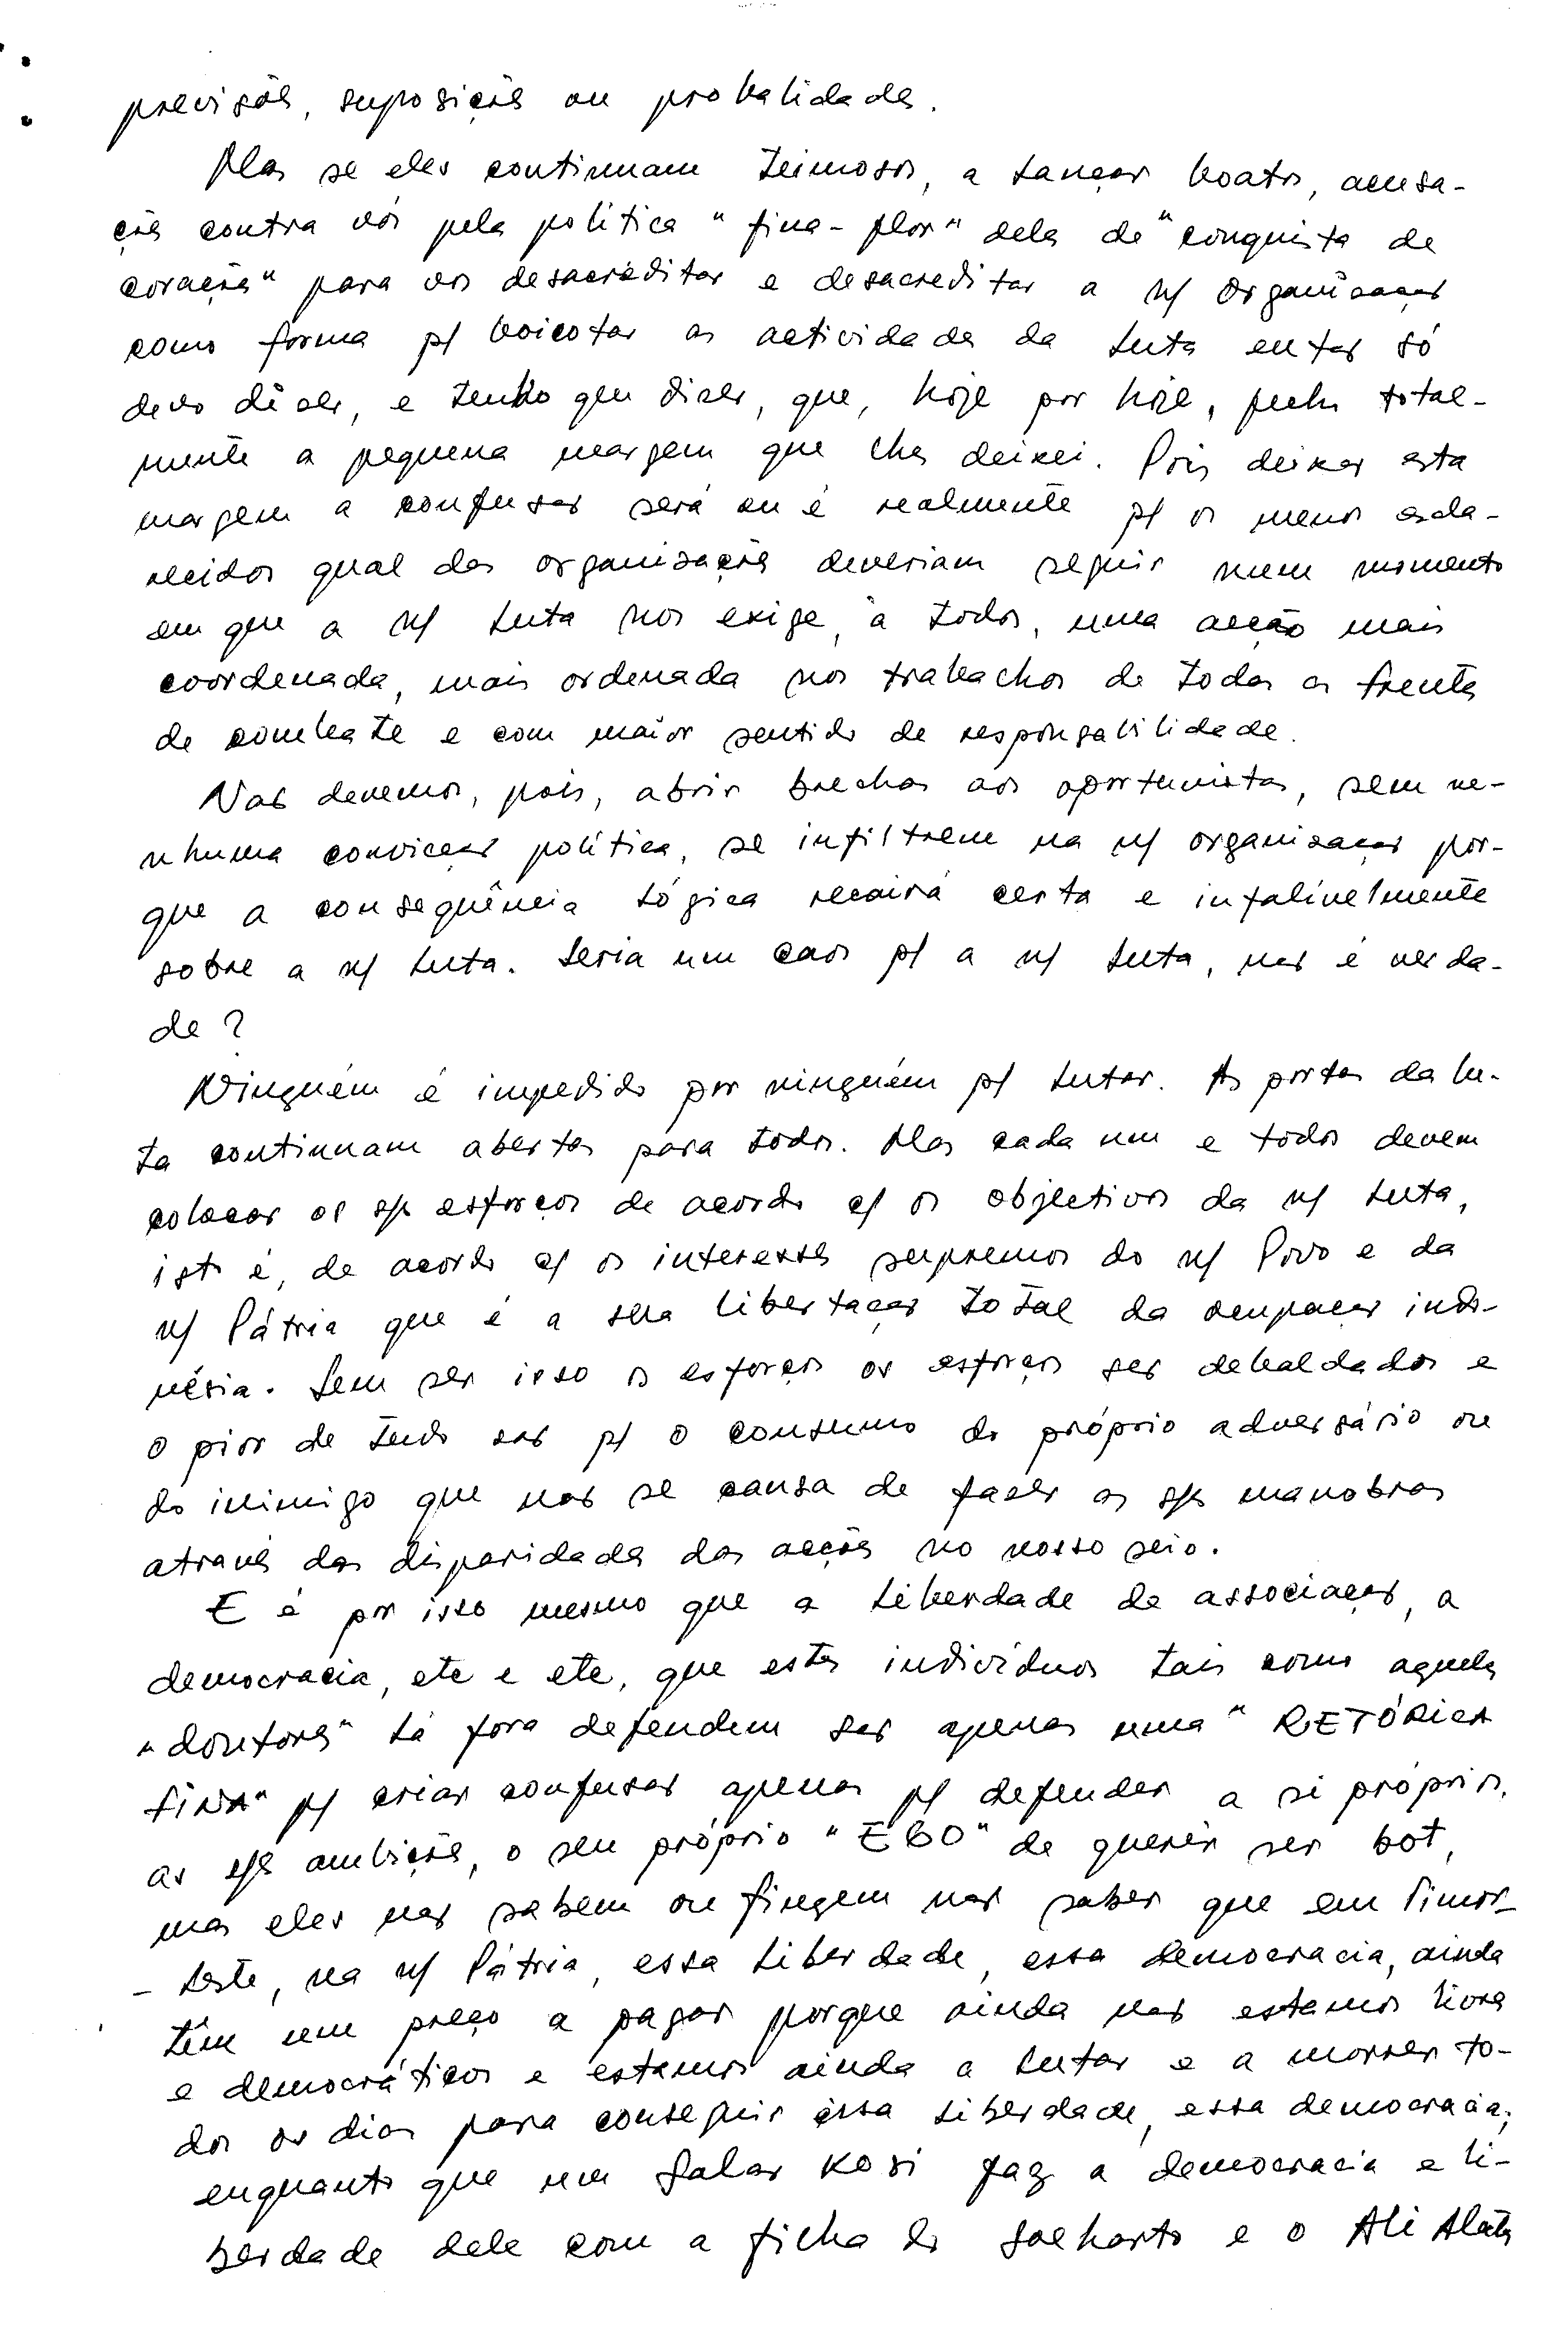 previsões, suposições ou probalidades.
Mas se eles continuam teimosos, a lançar boatos, acusa-
ções contra nós pela política "fina-flor" deles de "conquista de
corações" para nos desacreditar e desacreditar a n/ organização
como forma p/ boicotar as actividades da luta então só
devo dizer, e tenho que dizer, que, hoje por hoje, fecho total-
mente a pequena margem que lhes deixei. Pois deixar esta
margem a confusão será ou é realmente p/ os menos escla-
recidos qual das organizações deveriam seguir num momento
em que a n/ luta nos exige, a todos, uma acção mais
coordenada, mais ordenada nos trabalhos de todas as frentes
de combate e com maior sentido de responsabilidade.
Não devemos, pois, abrir brechas aos oportunistas, sem ne-
nhuma convicção política, se infiltrem na n/ organização por-
que a consequência lógica recairá certa e infalivelmente
sobre a n/ luta. Seria um caos p/ a n/ luta, não é verda-
de?
Ninguém é impedido por ninguém p/ lutar. As portas da lu-
ta continuam abertas para todos. Mas cada um e todos devem
colocar os s/s esforços de acordo c/ os objectivos da n/ luta,
isto é, de acordo c/ os interesses supremos do n/ Povo e da
n/ Pátria que é a sua libertação total da ocupação indo-
nésia. Sem ser isso os esforços os esforços são debaldados e
o pior de tudo são p/ o consumo do próprio adversário ou
do inimigo que não se cansa de fazer as s/s manobras
através das disparidades das acções no nosso seio.
E é por isso mesmo que a liberdade de associação, a
democracia, etc e etc, que estes indivíduos tais como aqueles
"doutores" lá fora defendem são apenas uma "RETÓRICA
FINA" p/ criar confusão apenas p/ defender a si próprios,
as s/s ambições, o seu próprio "EGO" de querer ser bot,
mas eles não sabem ou fingem não saber que em Timor-
-Leste, na n/ Pátria, essa liberdade, essa democracia, ainda
têm um preço a pagar porque ainda não estamos livres
e democráticos e estamos ainda a lutar e a morrer to-
dos os dias para conseguir essa liberdade, essa democracia;
enquanto que um Salar Kosi faz a democracia e li-
berdade dele com a ficha do Soeharto e o Ali Alatas